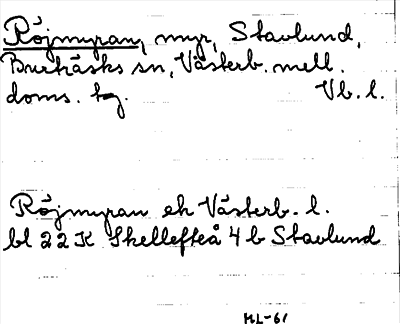 Röjmyran, myr, Stavlund,
Bureåsks sn, Västerb. mell.
doms. tg. Vb. l.
Röjmyran ek Västerb. l.
bl 22 K Skellefteå 4 b Stavlund
ML-61